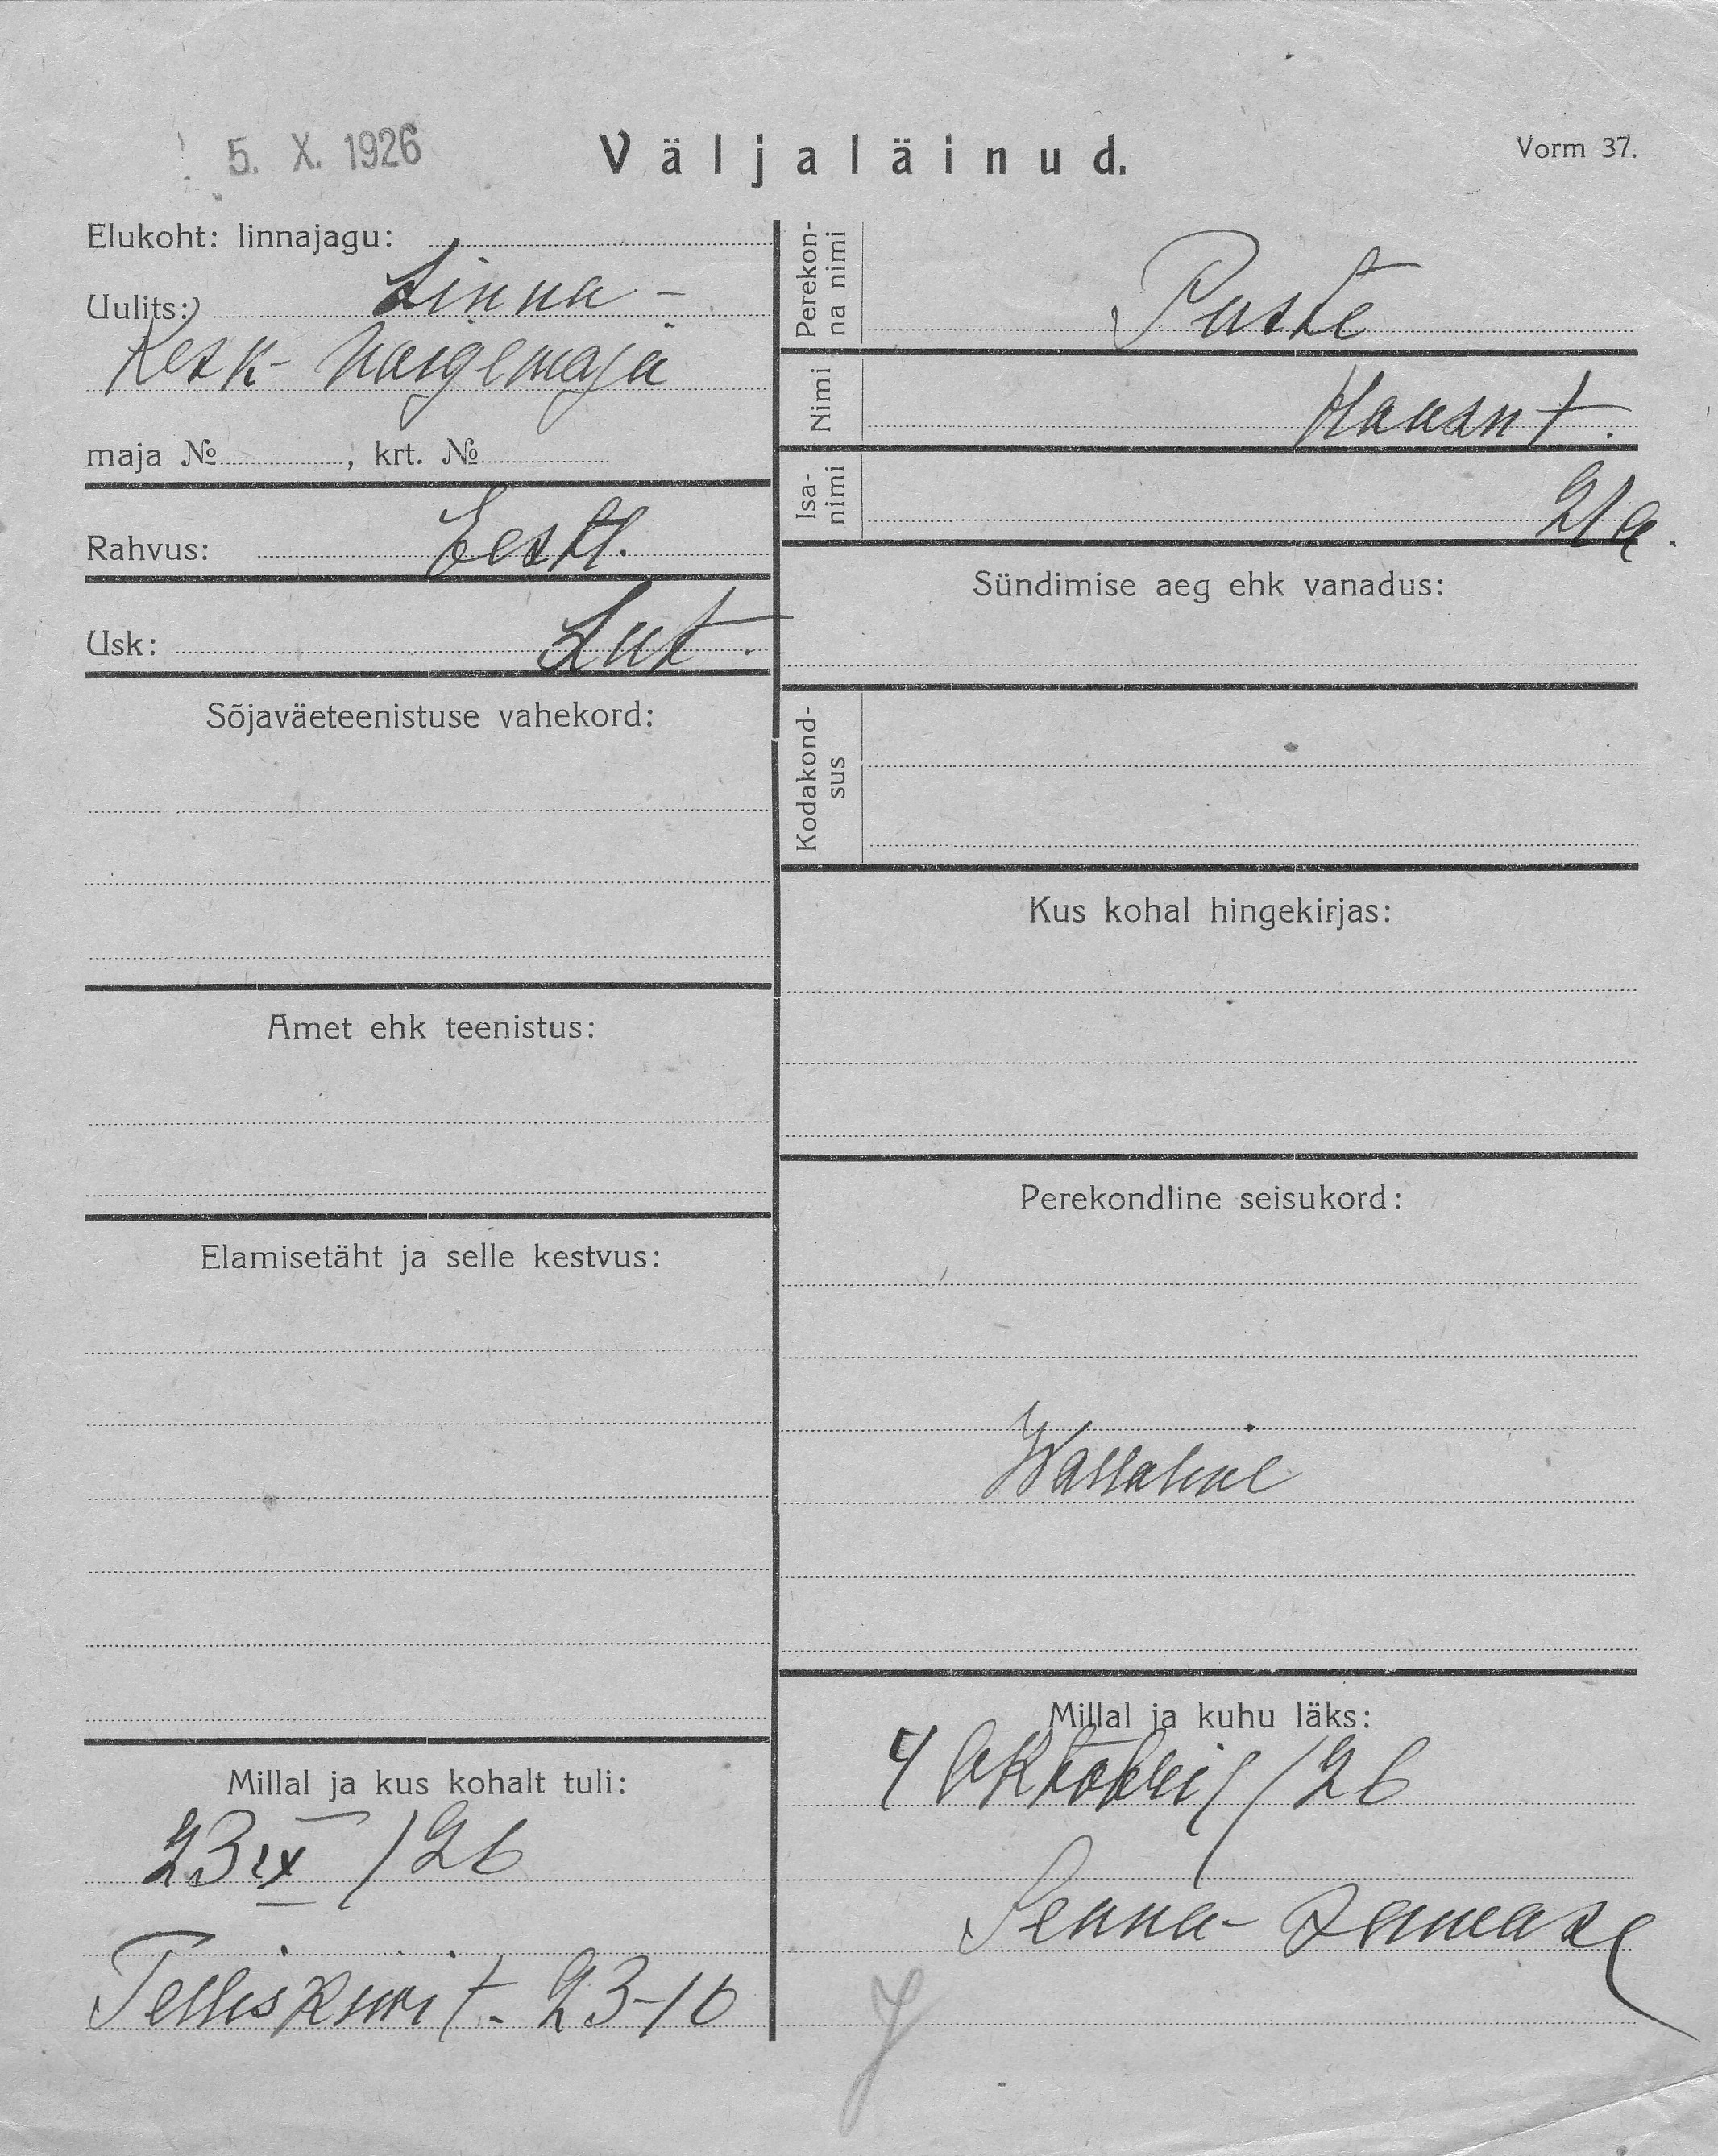 5. X. 1926
Väljaläinud.
Vorm 37.
Elukoht: linnajagu:
Uulits: Linna-
Kesk-haigemaja
maja №, krt. №
Rahvus: Eestl.
Usk: Lut.
Sõjaväeteenistuse vahekord:
Amet ehk teenistus:
Elamisetäht ja selle kestvus:
Millal ja kus kohalt tuli:
23 IX /26
Telliskivi t. 23-10
Perekon-
na nimi
Puste
Nimi
Isa-
nimi
21 a.
Sündimise aeg ehk vanadus:
Kodakond-
sus
Kus kohal hingekirjas:
Perekondline seisukord:
Wallaline
Millal ja kuhu läks:
4 Oktobril /26
Senna-samase